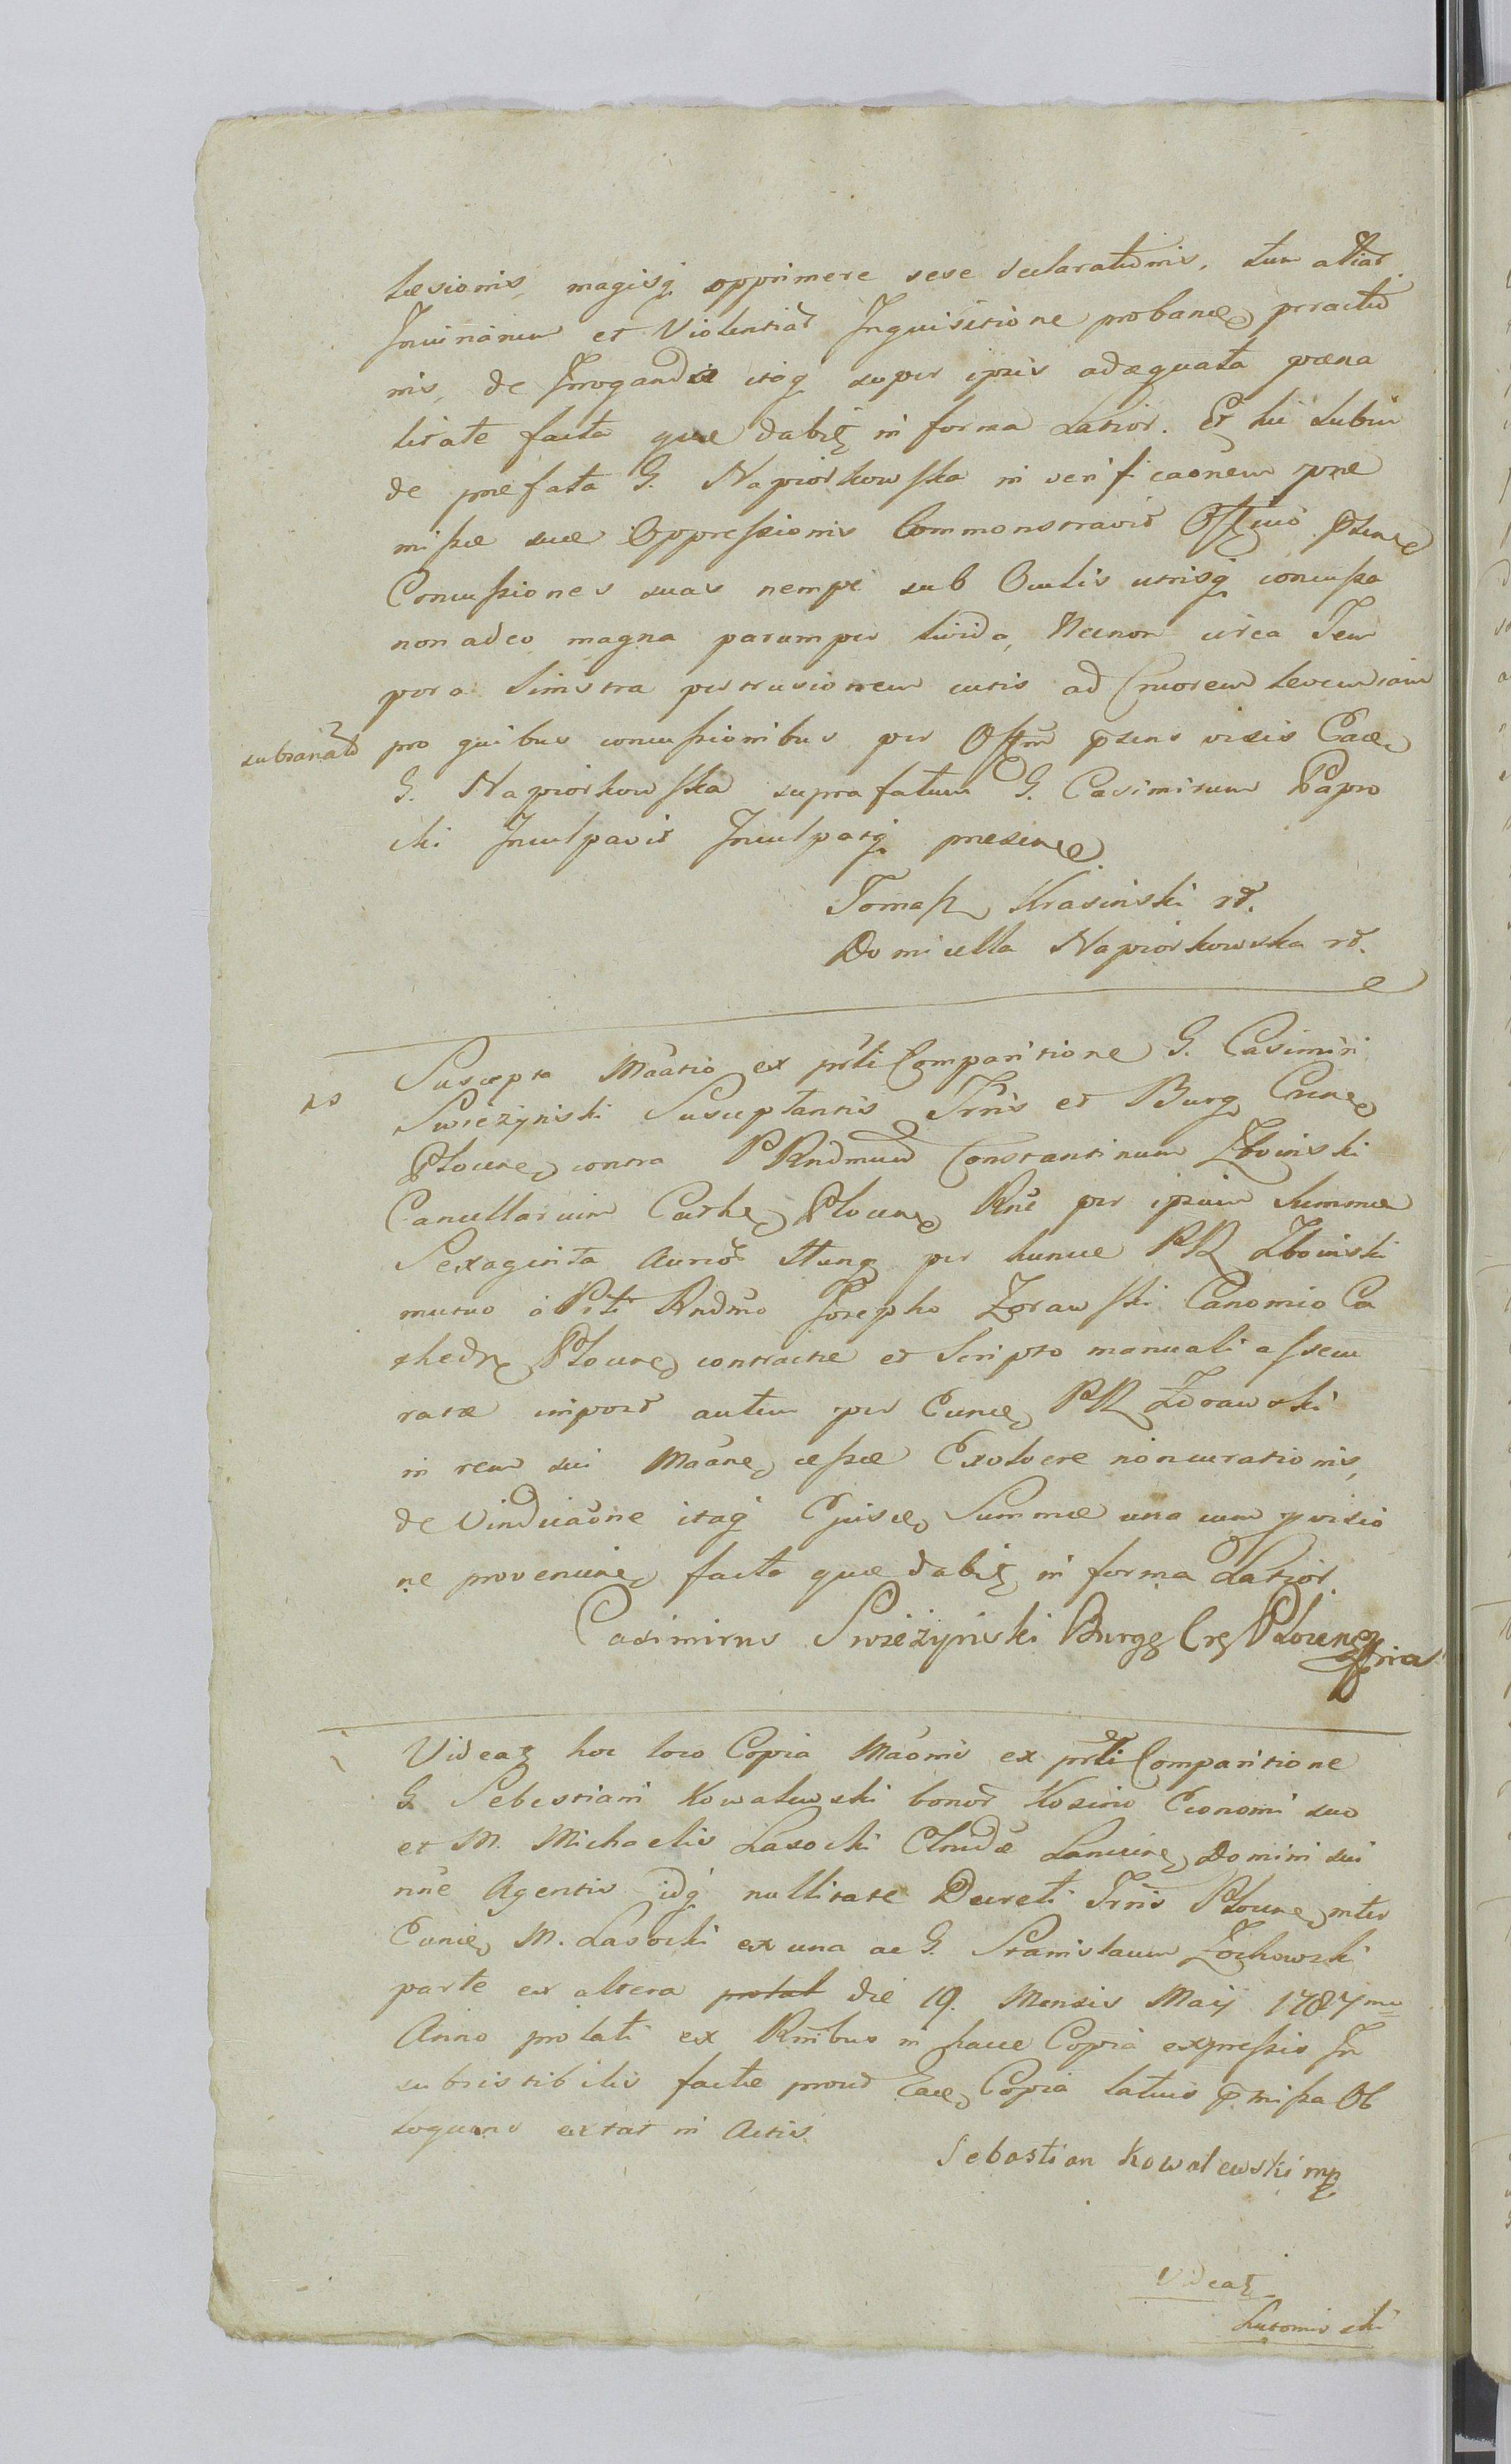 læsionis, magisq opprimere sese declarationis, tum aliar
Injuriarum et Violentiar Inquisitione probandæ peractio
nis, de Irrogandis itaq super ipsis adæquata pœna
litate facta quæ dabit in forma Latior. Et hic dubin
de præfata G. Napiorkowska in verificaonem præ
missæ suæ Oppressionis Commonstravit Offcio psenti
Concussiones suas nempe sub Oculis utrisq concussa
non adeo magna parumper livida, Necnon circa Tem
pora Sinistra pertrusionem cutis ad Cruorem levem iam
subsanato pro quibus concussionibus per Offm psens visis Eadem
G. Napiorkowska suprafatum G. Casimirum Papro
cki Inculpavit Inculpatq præsent
Tomasz Krasinski
Domicella Napiorkowska
Suscepta Maatio ex prti Comparitione G. Casimiri
Swieżynski Susceptantis Trris et Burg Crens
Plocens contra PRndmum Constantinum Zboinski
Cancellarium Cathe Plocens Rne per ipsum Summæ
Sexaginta Aureor Hung per hunc PR Zboinski
mutuo a Prti Rndmo Josepho Zorawski Canonico Ca
thedr Plocens contractæ et Scripto manuali assecu
ratæ import autem per Eund PR Zorawski
in rem sui Maane cessæ Exolvere noncurationis,
de Vindicaone itaq Ejusd Summæ una cum provisio
ne proveniend facta quæ dabit in forma Latior.
Casimirus Swieżynski Burg Crs Plocens
Videat hoc loco Copia Maonis ex prti Comparitione
G. Sebestiani Kowalewski bonor Kosino Economi suo
et M. Michaelis Lasocki Chudæ Lancicien Domini sui
nne Agentis idq nullitate Decreti Trris Plocens inter
Eund M. Lasocki ex una ac G. Stanislaum Zochowski
parte ex altera protal die 19. Mensis Maij 1787mo
Anno prolati ex Rnibus in hacce Copia expressis In
subsistibilis factæ prout Ead Copia latius pmissa Ob
loquens extat in Actis
Sebastian Kowalewski mp
Videat
Lutomirski